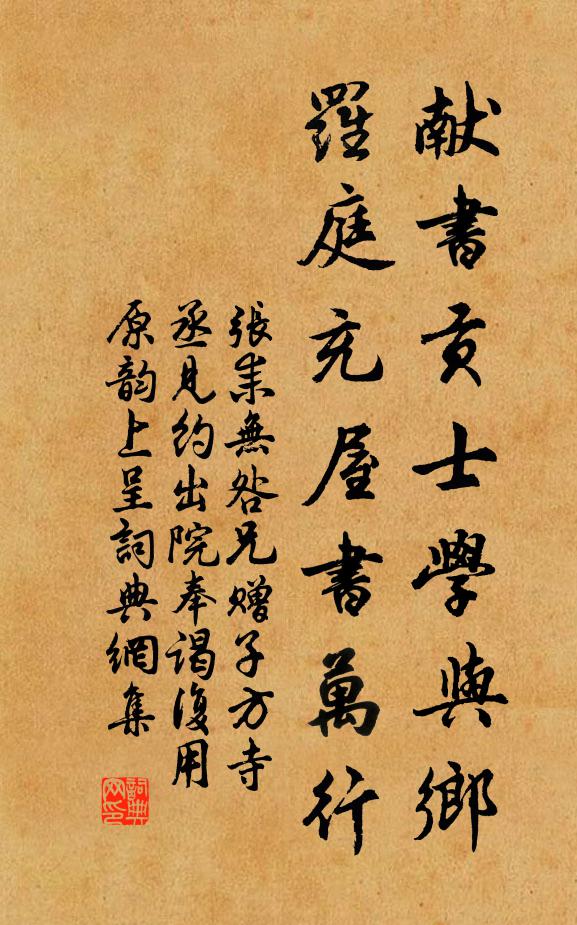 献書貢士學與鄉
羅庭充屋書萬行
張耒無咎兄贈子方寺
丞見約出院奉謁復用
原韵上呈詞典網集
詞典网印